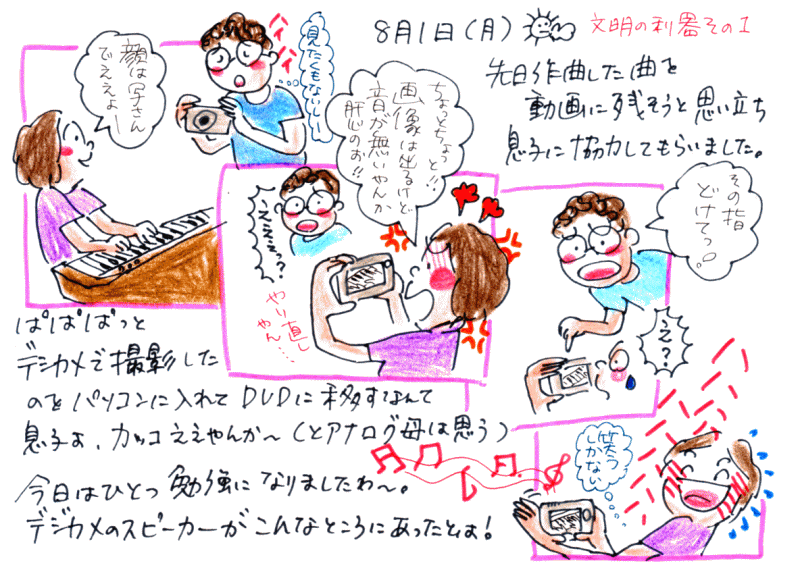 8月1日(月)
文明の利器その1
先日作曲した曲を
動画に残そうと思い立ち
息子に協力してもらいました。
顔は写さん
でええよー
ハイハイ
見たくもないしー
ちょっとちょっ
と!!
画像は出るけど
音が無いやんか
肝心のぉ!!
うえぇっ?
やり直し
やん…
その指
どけてっ
え?
ぱぱぱっと
デジカメで撮影した
のをパソコンに入れてDVDに移すなんて
息子よ、カッコええやんか〜(とアナログ母は思う)
笑う
しかない
今日はひとつ勉強になりましたわ〜。
デジカメのスピーカーがこんなところにあったとは!